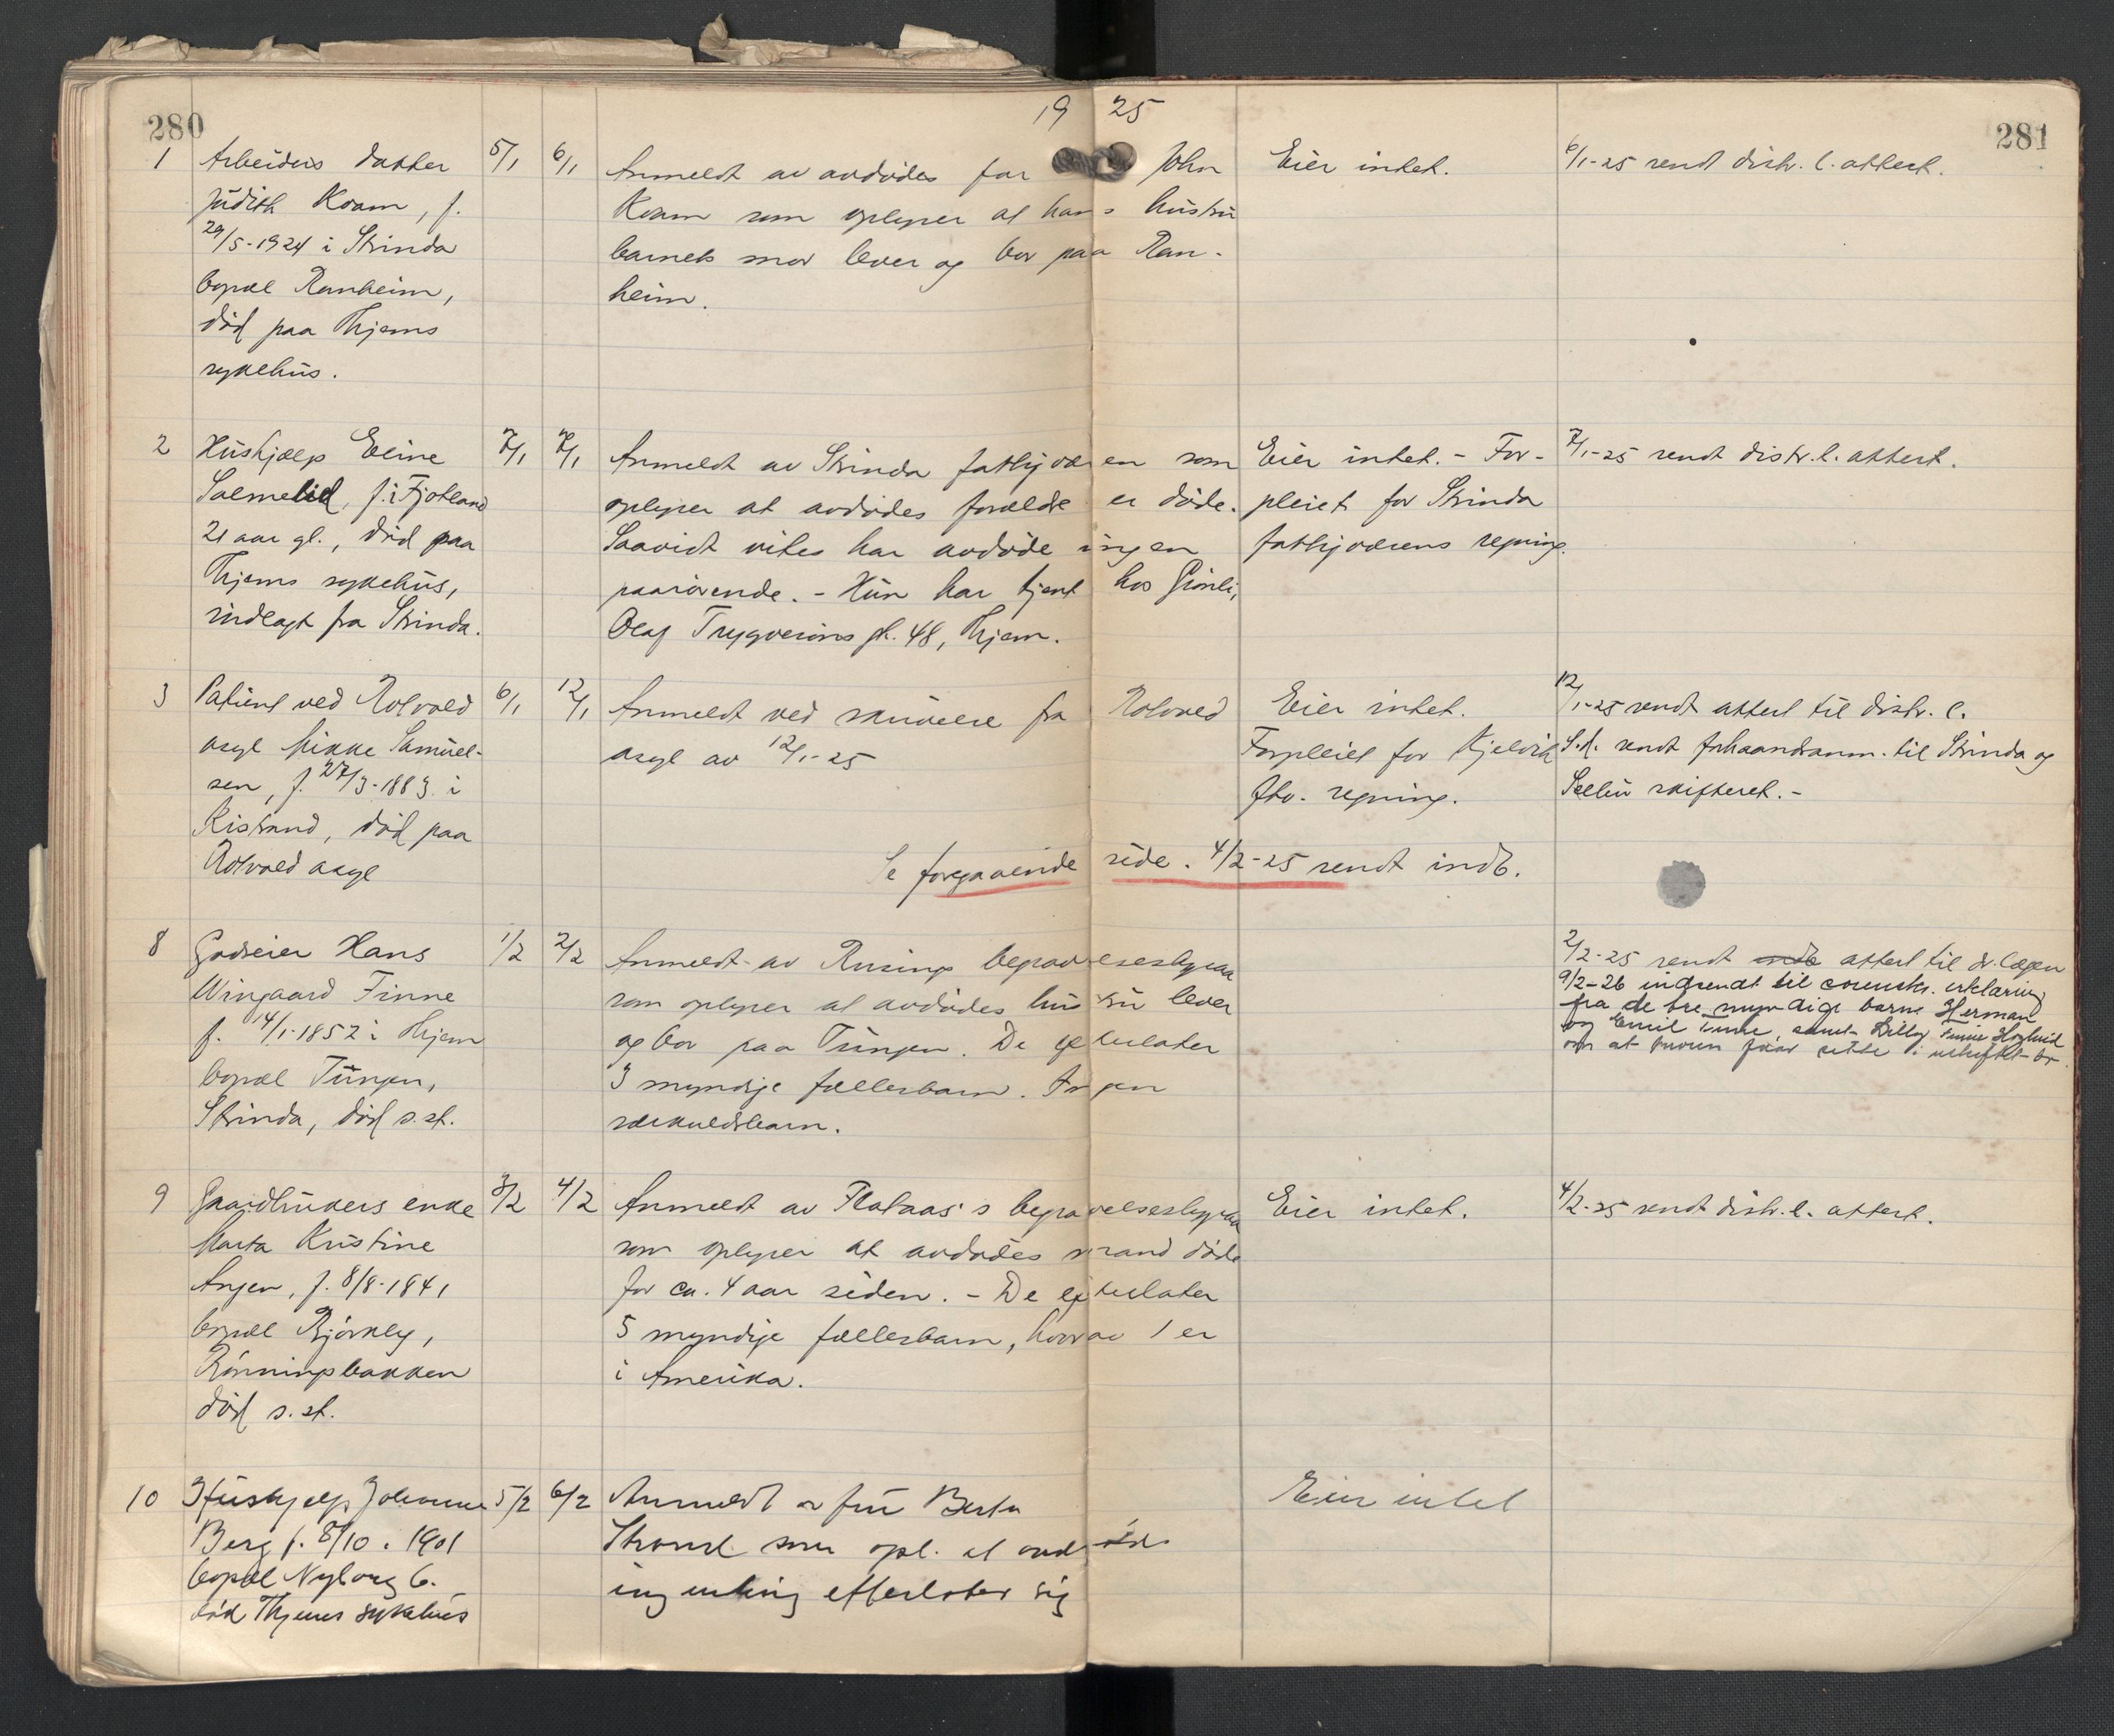 280
19 25
281
1
Arbeiders datter
Judith Kvam, f.
29/5-1924 i Strinda
bopæl Ranheim,
död paa Thjems
sykehus.
5/1
6/1
Anmeldt av avdödes far John
Kvam som oplyser at hans hustru
barnets mor lever og bor paa Ran-
heim.
Eier intet.
6/1-25 sendt distr. l. attest.
2
Hushjælp Eline
Salmelid, f. i Fjotland
21 aar gl., död paa
Thjems sykehus,
indlagt fra Strinda.
7/1
7/1
Anmeldt av Strinda fattigvæsen som
oplyser at avdödes forældre er döde.
Saavidt vites har avdöde ingen
paarörende. - Hun har tjent hos
Olaf Trygvesöns gt. 48, Thjem.
Eier intet. - For-
pleiet for Strinda
fattigvæsens regning.
7/1-25 sendt distr. l. attest.
3
Patient ved Rotvold
asyl Mikke Samuel-
sen, f. 27/3-1883 i
Kistrand, död paa
Rotvold asyl
6/1
12/1
Anmeldt ved skrivelse fra Rotvold
asyl av 12/1-25
Eier intet.
Forpleiet for Kjelvik
ftv. regning.
12/1-25 sendt attest til distr. l.
S.d. sendt forhaandsanm. til Strinda og
Selbu skifteret. -
Se foregaaende side. 4/2-25 sendt indb.
8
Godseier Hans
Wingaard Finne
f. 14/1-1852 i Thjem
bopæl Tungen,
Strinda, död s. st.
1/2
2/2
Anmeldt av Rusings begravelsesbyraa
som oplyser at avdödes hustru lever
og bor paa Tungen. De efterlater
3 myndige fællesbarn. Ingen
særkuldsbarn.
2/2-25 sendt indb attest til dr. lægen
9/2-26 indsendt til erklæring
fra de tre myndige barna Herman
og Emil Finne, samt Finne
om at faar sitte i uskiftet bo
9
Gaardbrukers enke
Marta Kristine
Angen, f. 8/8-1841
bopæl Björkly,
Rönningsbakken
död s. st.
3/2
4/2
Anmeldt av Flataas's begravelsesbyraa
som oplyser at avdödes mand döde
for ca. 4 aar siden. - De efterlater
5 myndige fællesbarn, hvorav 1 er
i Amerika.
Eier intet.
4/2-25 sendt distr. l. attest.
10
Hushjelp Johanne
Berg f. 8/10.1901
bopæl Nyborg 6.
död Thjems sykehus
5/2
6/2
Anmeldt av fru Berta
Strand som opl. at avdöde
ingenting efterlater sig
Eier intet